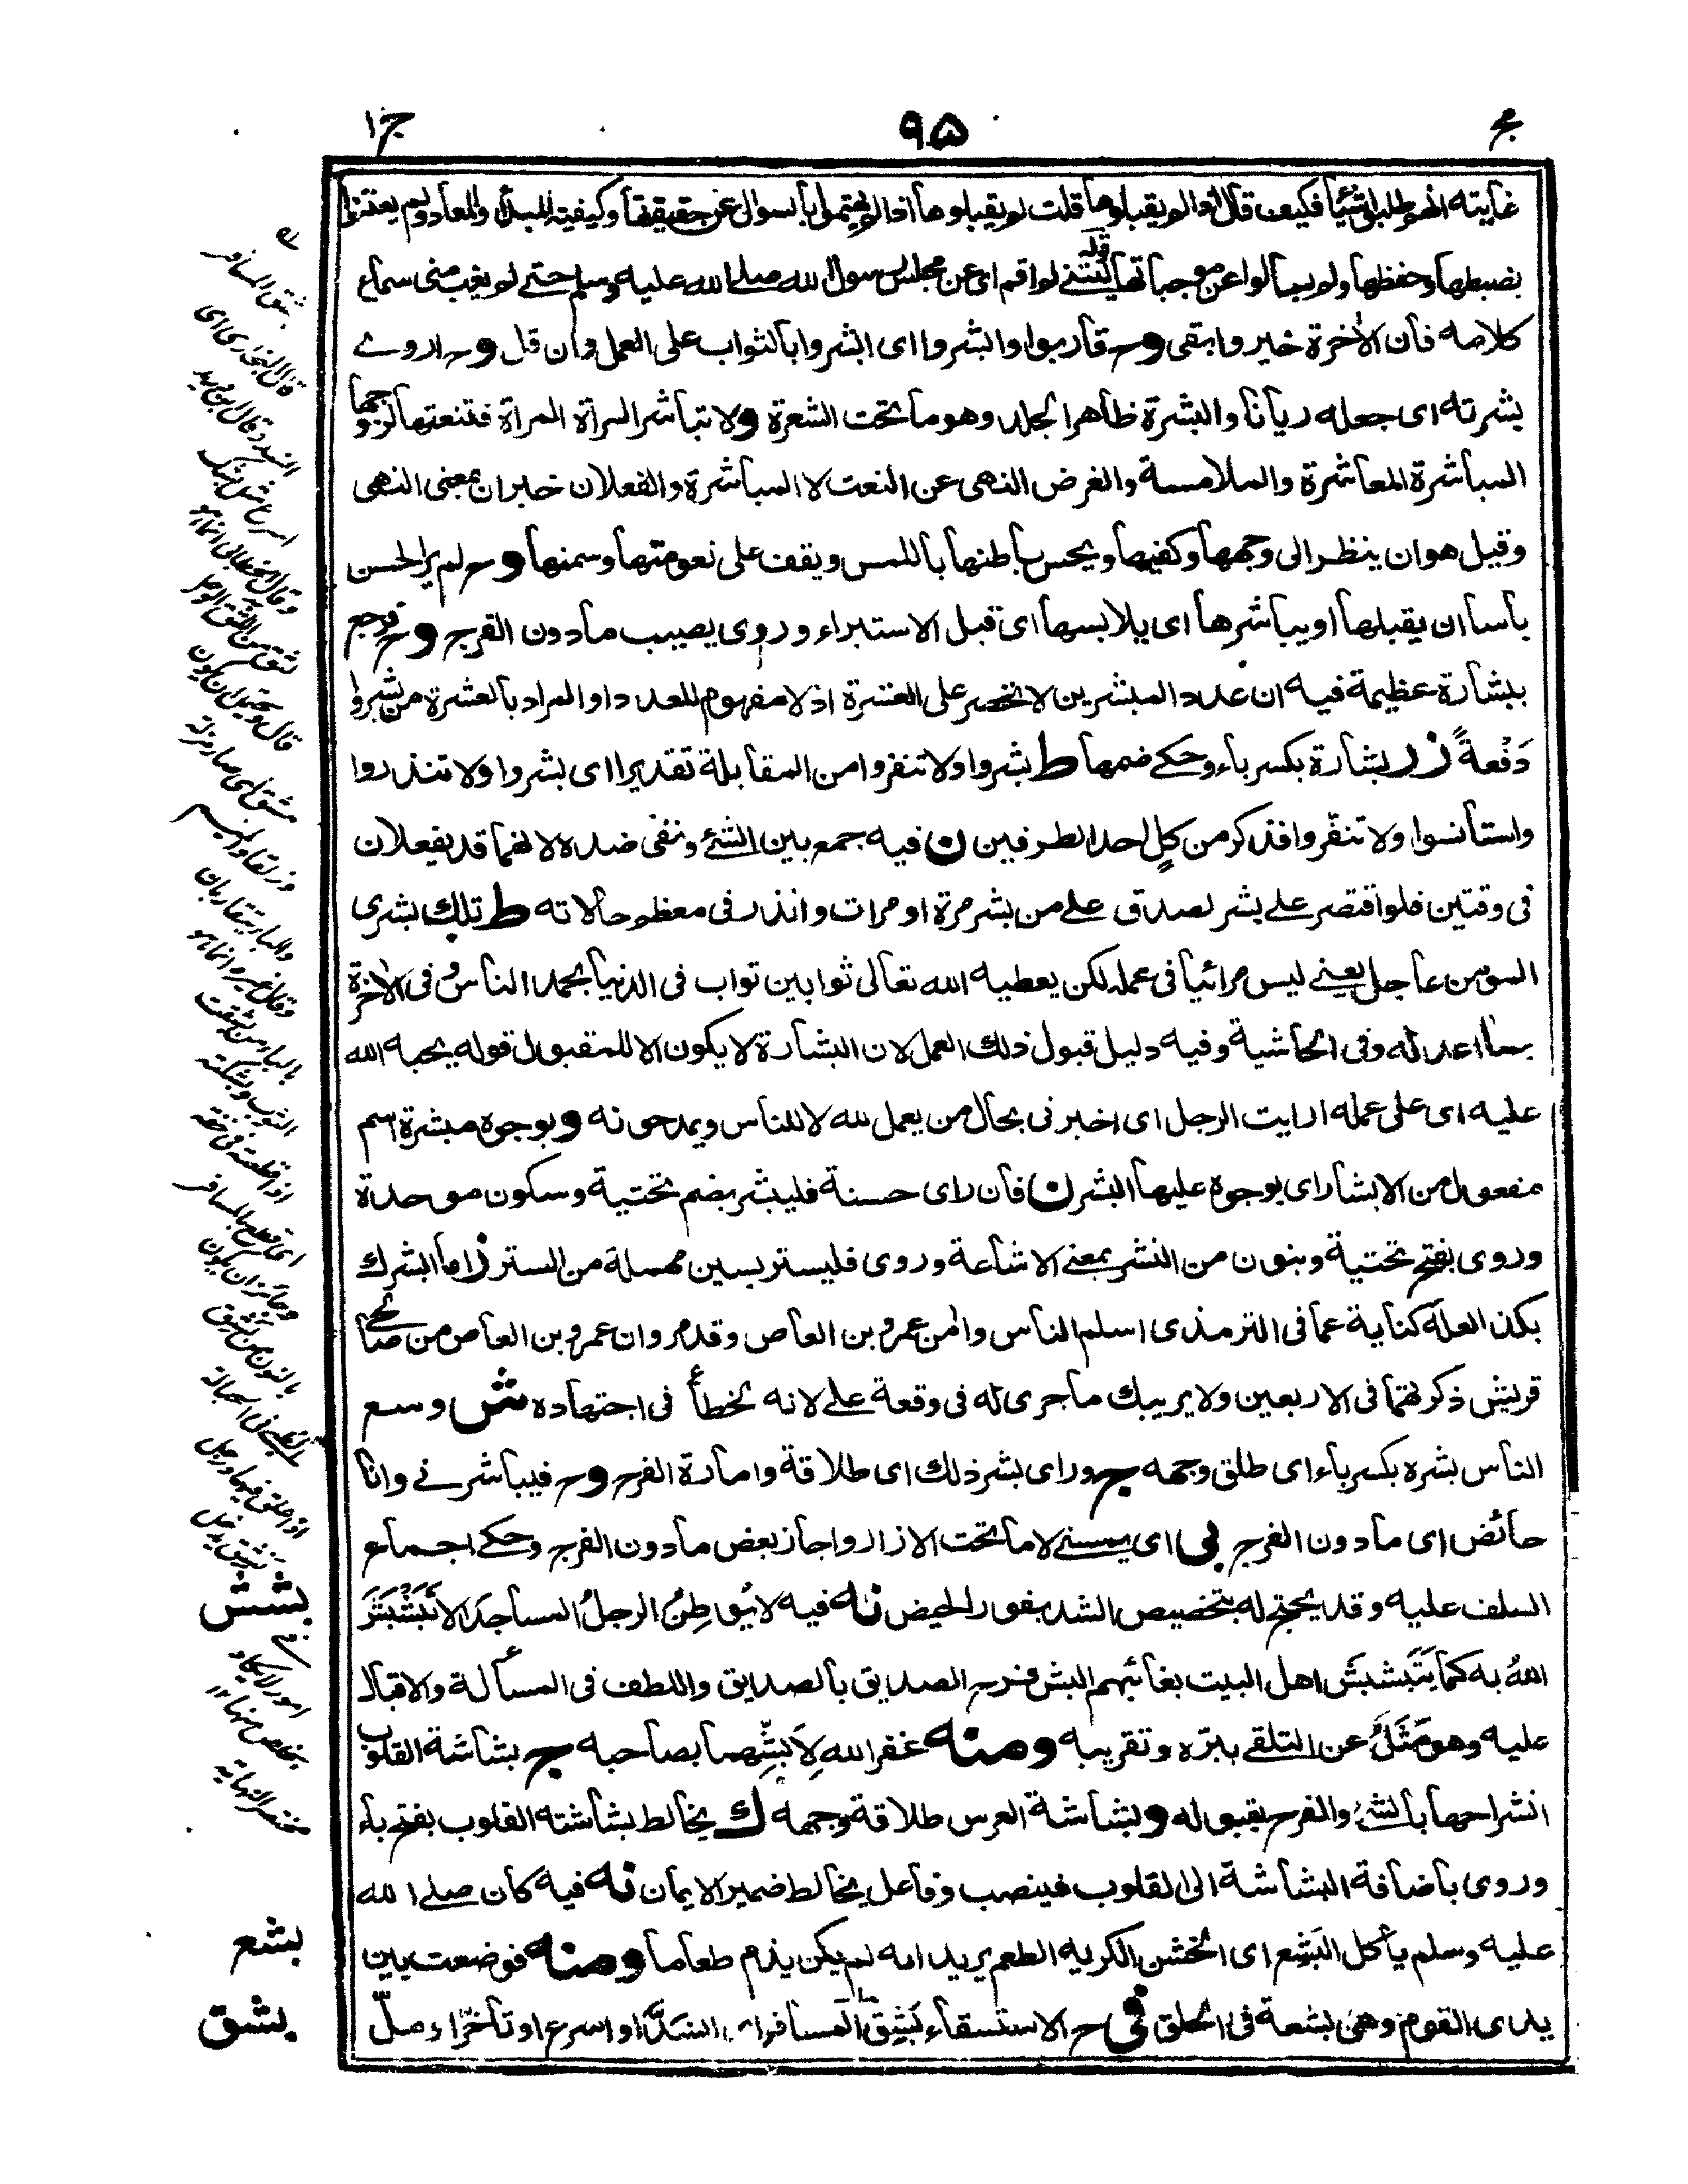 مج ٩٥ ج١
غايته انهم طلبوا شيئا فكيف قال انه لم يقبلوها قلت لم يقبلوها اذا لم يهتموا بالسوال عن حقيقتها وكيفية المبدأ والمعاد ولم يعتنوا
بضبطها وحفظها ولم يسألوا عن موجباتها قوله ليتني لو اقم اى عن مجلس رسول الله صلى الله عليه وسلم حتى لم يغب منى سماع
كلامه فان الاخرة خير وابقى وح قاربوا وابشروا اى ابشروا بالثواب على العمل وان قل وح اروى
بشرته اى جعله ريانا والبشرة ظاهر الجلد وهو ما تحت الشعرة ولا تباشر المرأة المرأة فتنعتها لزوجها
المباشرة المعاشرة والملامسة والغرض النهى عن النعت لا المباشرة والفعلان خبران بمعنى النهى
وقيل هو ان ينظر الى وجهها وكفيها ويحس باطنها باللمس ويقف على نعومتها وسمنها وح لم ير الحسن
بأسا ان يقبلها او يباشرها اى يلابسها اى قبل الاستبراء وروى يصيب مادون الفرج وح فرجع
ببشارة عظيمة فيه ان عدد المبشرين لا تنحصر على العشرة اذ لا مفهوم للعدد او المراد بالعشرة من بشروا
دَفْعةً زر بشارة بكسر باء وحكى ضمها ط بشروا ولا تنفروا من المقابلة تقديرا اى بشروا ولا تنذروا
واستأنسوا ولا تنفّروا فذكر من كلٍ احد الطرفين ن فيه جمع بين الشئ ونفى ضده لانهما قد يفعلان
فى وقتين فلو اقتصر على بشر لصدق على من بشر مرة او مرات وانذر فى معظم حالاته ط تلك بشرى
المؤمن عاجل يعنى ليس مرائيا فى عمله لكن يعطيه الله تعالى ثوابين ثواب فى الدنيا بحمد الناس وفى الأخرة
بما اعد له وفى الحاشية وفيه دليل قبول ذلك العمل لان البشارة لا يكون الا للمقبول قوله يحبه الله
عليه اى على عمله ارايت الرجل اى اخبرنى بحال من يعمل لله لا للناس ويمدحونه وبوجوه مبشرة اسم
مفعول من الابشار اى بوجوه عليها البشر ن فان راى حسنة فليبشر بضم تحتية وسكون موحدة
وروى بفتح تحتية وبنون من النشر بمعنى الاشاعة وروى فليستر بسين مهملة من الستر ز اما ابشرك
بكذا لعله كناية عما فى الترمذى اسلم الناس وامن عمرو بن العاص وقد مر وان عمرو بن العاص من صالحى
قريش ذكرتهما فى الاربعين ولا يريبك ما جرى له فى وقعة على لانه تخطأ فى اجتهاده ش وسع
الناس بشره بكسر باء اى طلق وجهه ج وراى بشر ذلك اى طلاقة وامارة الفرح وح فيباشرنى وانا
حائض اى مادون الفرج بى اى يمسنى لا ما تحت الازار واجاز بعض مادون الفرج وحكى اجماع
السلف عليه وقد يحتج له بتخصيص الشد بفور الحيض نه فيه لايُوطِنُ الرجلُ المساجدَ الا تَبَشْبَشَ
اللهُ به كما يَتَبَشبَش اهل البيت بغائبهم البش فرح الصديق بالصديق واللطف فى المسألة والاقبال
عليه وهو مَثَلٌ عن التلقى ببرّه وتقريبه ومنه غفر الله لِاَبَشِّهما بصاحبه ج بشاشة القلوب
انشراحها بالشئ والفرح بقبوله وبشاشة العرس طلاقة وجهه ك يخالط بشاشته القلوب بفتح باء
وروى باضافة البشاشة الى القلوب فينصب وفاعل يخالط ضمير الايمان نه فيه كان صلى الله
عليه وسلم يأكل البَشِع اى الخشن الكريه الطعم يريد انه لم يكن يذم طعاما ومنه فوضعت بين
يدى القوم وهى بشعة فى الحلق فى ح الاستسقاء بَشِقَ المسافر اى انسدّ او اسرع او تأخّر او ملّ
بشق المسافر
قال البخارى اى
انسد وقال ابن دريد
وقال الخطابى انما هو
لثق من اللثق الوحل
قال ويحتمل ان يكون
مشق اى صار مزلة
وزلقا والميم
والباء يتقاربان
وقال غيره انما هو
بالباء من بشقت
الثوب وبشكته
اذا قطعته فى خفة
اى قطع بالمسافر
وجائز ان يكون
بالنون من نشق
الظبى فى الحبالة
اذا علق فيها ورجل
نشق يدخل
امور لا يكاد
يتخلص منها ١٢
مختصر النهاية
بشش
بشع
بشق